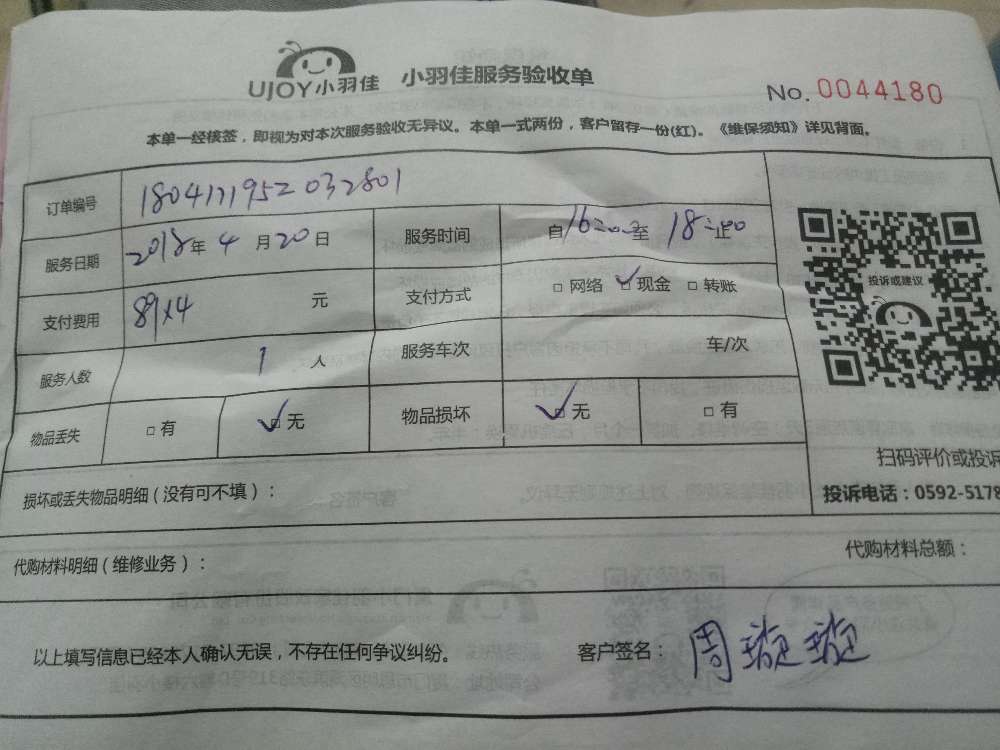 UJOY小羽佳 小羽佳服务验收单
No. 0044180
本单一经核签，即视为对本次服务验收无异议。本单一式两份，客户留存一份(红)。《维保须知》详见背面。
订单编号 1804171952032801
服务日期 2018年4月20日 服务时间 自16:00至18:00止
支付费用 89x4 元 支付方式 □网络 ☑现金 □转账
服务人数 1人 服务车次 车/次
物品丢失 □有 ☑无 物品损坏 ☑无 □有
投诉或建议
扫码评价或投诉
投诉电话：0592-5178
损坏或丢失物品明细（没有可不填）：
代购材料明细（维修业务）： 代购材料总额：
以上填写信息已经本人确认无误，不存在任何争议纠纷。 客户签名：周璇璇